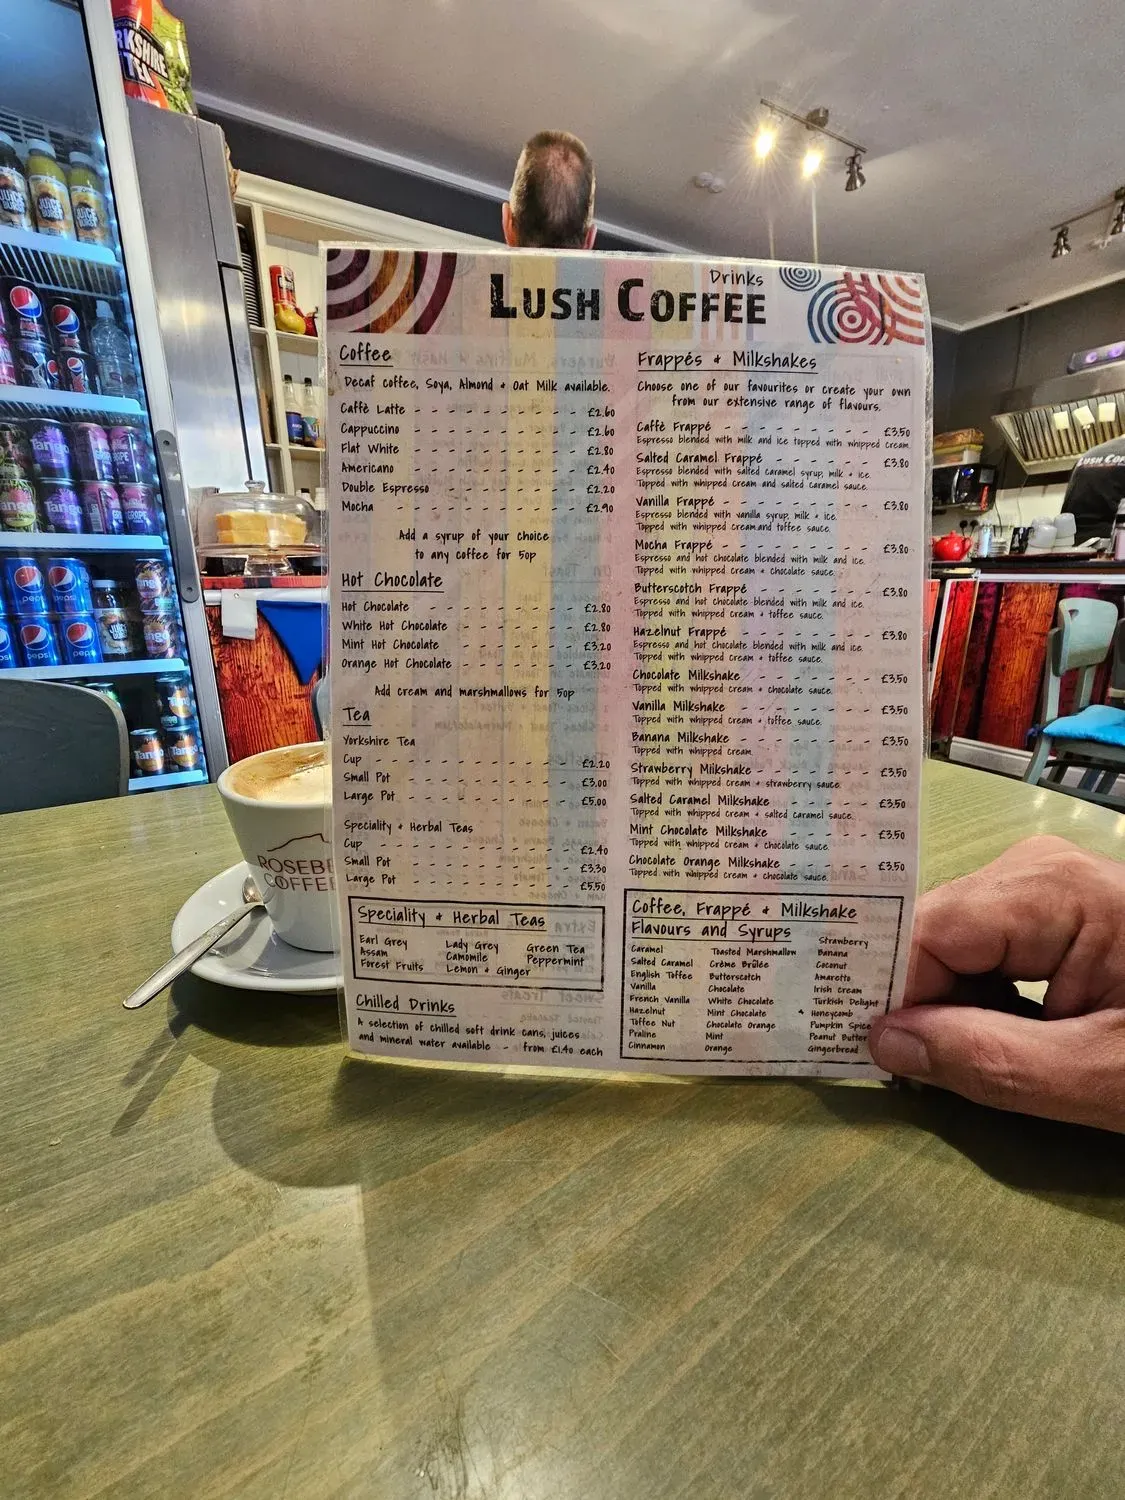 YORKSHIRE
TEA
Drinks
LUSH COFFEE
Coffee
Decaf coffee, Soya, Almond + Oat Milk available.
Caffè Latte - - - - - - - - - £2.60
Cappuccino - - - - - - - - - £2.60
Flat White - - - - - - - - - £2.80
Americano - - - - - - - - - £2.40
Double Espresso - - - - - - - - £2.20
Mocha - - - - - - - - - - £2.90
Add a syrup of your choice
to any coffee for 50p
Hot Chocolate
Hot Chocolate - - - - - - - - £2.80
White Hot Chocolate - - - - - - £2.80
Mint Hot Chocolate - - - - - - £3.20
Orange Hot Chocolate - - - - - - £3.20
Add cream and marshmallows for 50p
Tea
Yorkshire Tea
Cup - - - - - - - - - - £2.20
Small Pot - - - - - - - - - £3.00
Large Pot - - - - - - - - - £5.00
Speciality + Herbal Teas
Cup - - - - - - - - - - £2.40
Small Pot - - - - - - - - - £3.30
Large Pot - - - - - - - - - £5.50
Speciality + Herbal Teas
Earl Grey Lady Grey Green Tea
Assam Camomile Peppermint
Forest Fruits Lemon + Ginger
Chilled Drinks
A selection of chilled soft drink cans, juices
and mineral water available - from £1.40 each
Frappés + Milkshakes
Choose one of our favourites or create your own
from our extensive range of flavours.
Caffè Frappé - - - - - - - - £3.50
Espresso blended with milk and ice topped with whipped cream.
Salted Caramel Frappé - - - - - - £3.80
Espresso blended with salted caramel syrup, milk + ice.
Topped with whipped cream and salted caramel sauce.
Vanilla Frappé - - - - - - - - £3.80
Espresso blended with vanilla syrup, milk + ice.
Topped with whipped cream and toffee sauce.
Mocha Frappé - - - - - - - - £3.80
Espresso and hot chocolate blended with milk and ice.
Topped with whipped cream + chocolate sauce.
Butterscotch Frappé - - - - - - £3.80
Espresso and hot chocolate blended with milk and ice.
Topped with whipped cream + toffee sauce.
Hazelnut Frappé - - - - - - - £3.80
Espresso and hot chocolate blended with milk and ice.
Topped with whipped cream + toffee sauce.
Chocolate Milkshake - - - - - - £3.50
Topped with whipped cream + chocolate sauce.
Vanilla Milkshake - - - - - - - £3.50
Topped with whipped cream + toffee sauce.
Banana Milkshake - - - - - - - £3.50
Topped with whipped cream.
Strawberry Milkshake - - - - - - £3.50
Topped with whipped cream + strawberry sauce.
Salted Caramel Milkshake - - - - - £3.50
Topped with whipped cream + salted caramel sauce.
Mint Chocolate Milkshake - - - - - £3.50
Topped with whipped cream + chocolate sauce.
Chocolate Orange Milkshake - - - - £3.50
Topped with whipped cream + chocolate sauce.
Coffee, Frappé + Milkshake
Flavours and Syrups
Caramel Toasted Marshmallow Strawberry
Salted Caramel Crème Brûlée Banana
English Toffee Butterscotch Coconut
Vanilla Chocolate Amaretto
French Vanilla White Chocolate Irish Cream
Hazelnut Mint Chocolate Turkish Delight
Toffee Nut Chocolate Orange Honeycomb
Praline Mint Pumpkin Spice
Cinnamon Orange Peanut Butter
Gingerbread
ROSEBE
COFFEE
JUICE BURST
Tango
pepsi